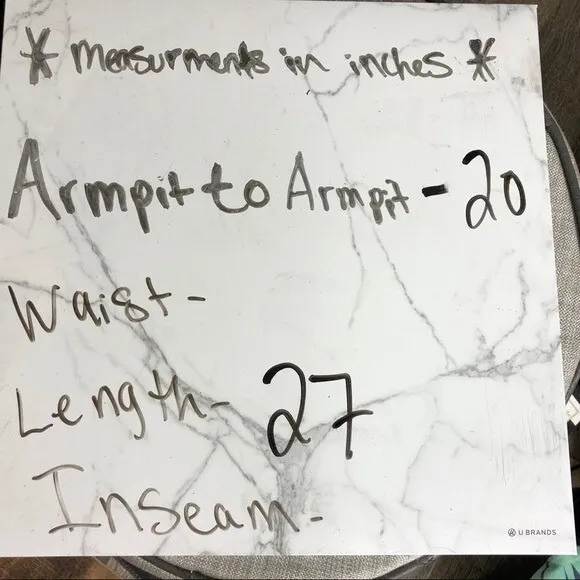 * measurments in inches *
Armpit to Armpit - 20
Waist -
Length - 27
Inseam -
U BRANDS